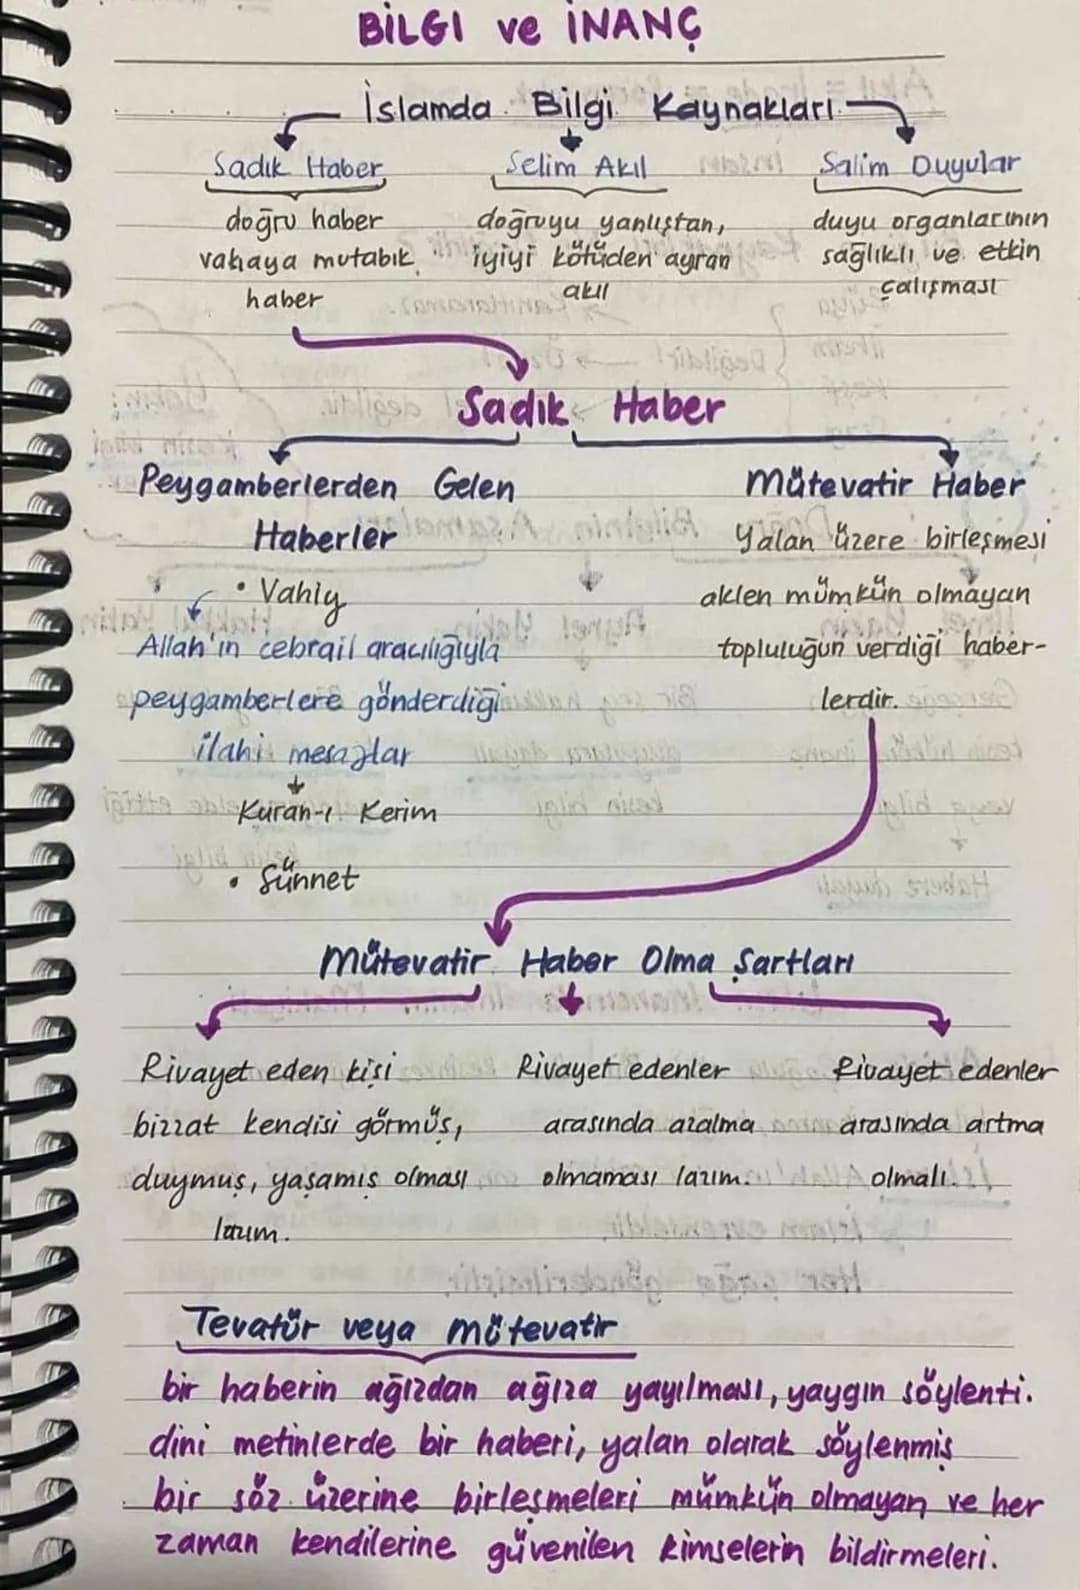 BİLGİ ve İNANÇ
İslamda Bilgi Kaynakları
Sadık Haber
doğru haber
vahaya mutabık
haber
Selim Akıl
doğruyu yanlıştan,
iyiyi kötüden ayıran
akıl
Salim Duyular
duyu organlarının
sağlıklı ve etkin
çalışması
Sadık Haber
Peygamberlerden Gelen
Haberler
• Vahiy
Allah'ın cebrail aracılığıyla
peygamberlere gönderdiği
ilahi mesajlar
Kuran-ı Kerim
• Sünnet
Mütevatir Haber
Yalan üzere birleşmesi
aklen mümkün olmayan
topluluğun verdiği haber-
lerdir.
Mütevatir Haber Olma Şartları
Rivayet eden kişi
bizzat kendisi görmüş,
duymuş, yaşamış olması
lazım.
Rivayet edenler
arasında azalma
olmaması lazım.
Rivayet edenler
arasında artma
olmalı.
Tevatür veya mütevatir
bir haberin ağızdan ağıza yayılması, yaygın söylenti.
dini metinlerde bir haberi, yalan olarak söylenmiş
bir söz üzerine birleşmeleri mümkün olmayan ve her
zaman kendilerine güvenilen kimselerin bildirmeleri.